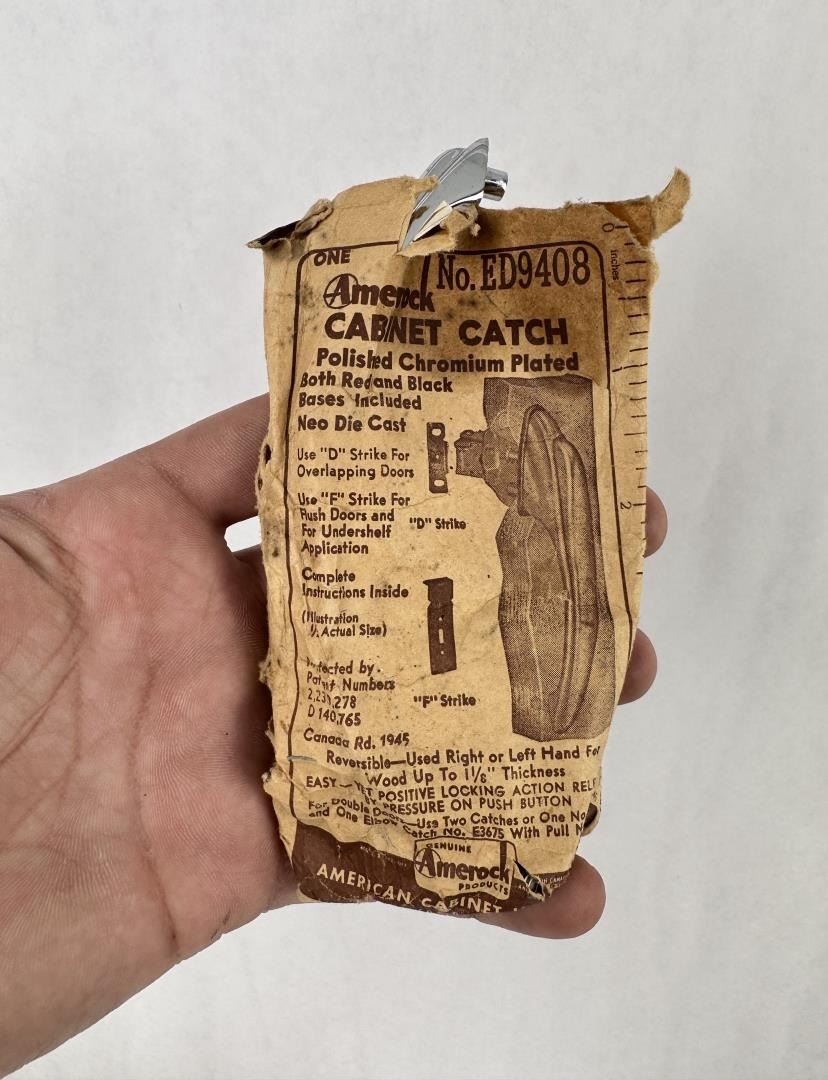 ONE
No. ED9408
Amerock
CABINET CATCH
Polished Chromium Plated
Both Red and Black
Bases Included
Neo Die Cast
Use "D" Strike For
Overlapping Doors
"D" Strike
Use "F" Strike For
Flush Doors and
For Undershelf
Application
Complete
Instructions Inside
(Illustration
½ Actual Size)
"F" Strike
Protected by
Patent Numbers
278
D 140,765
Canada Rd. 1945
Reversible—Used Right or Left Hand For
Wood Up To 1 1/8" Thickness
EASY—YET POSITIVE LOCKING ACTION
BY PRESSURE ON PUSH BUTTON
For Double Doors—Use Two Catches or One No
and One Elbow Catch No. E3675 With Pull
GENUINE
Amerock
PRODUCTS
AMERICAN CABINET
0
inches
2